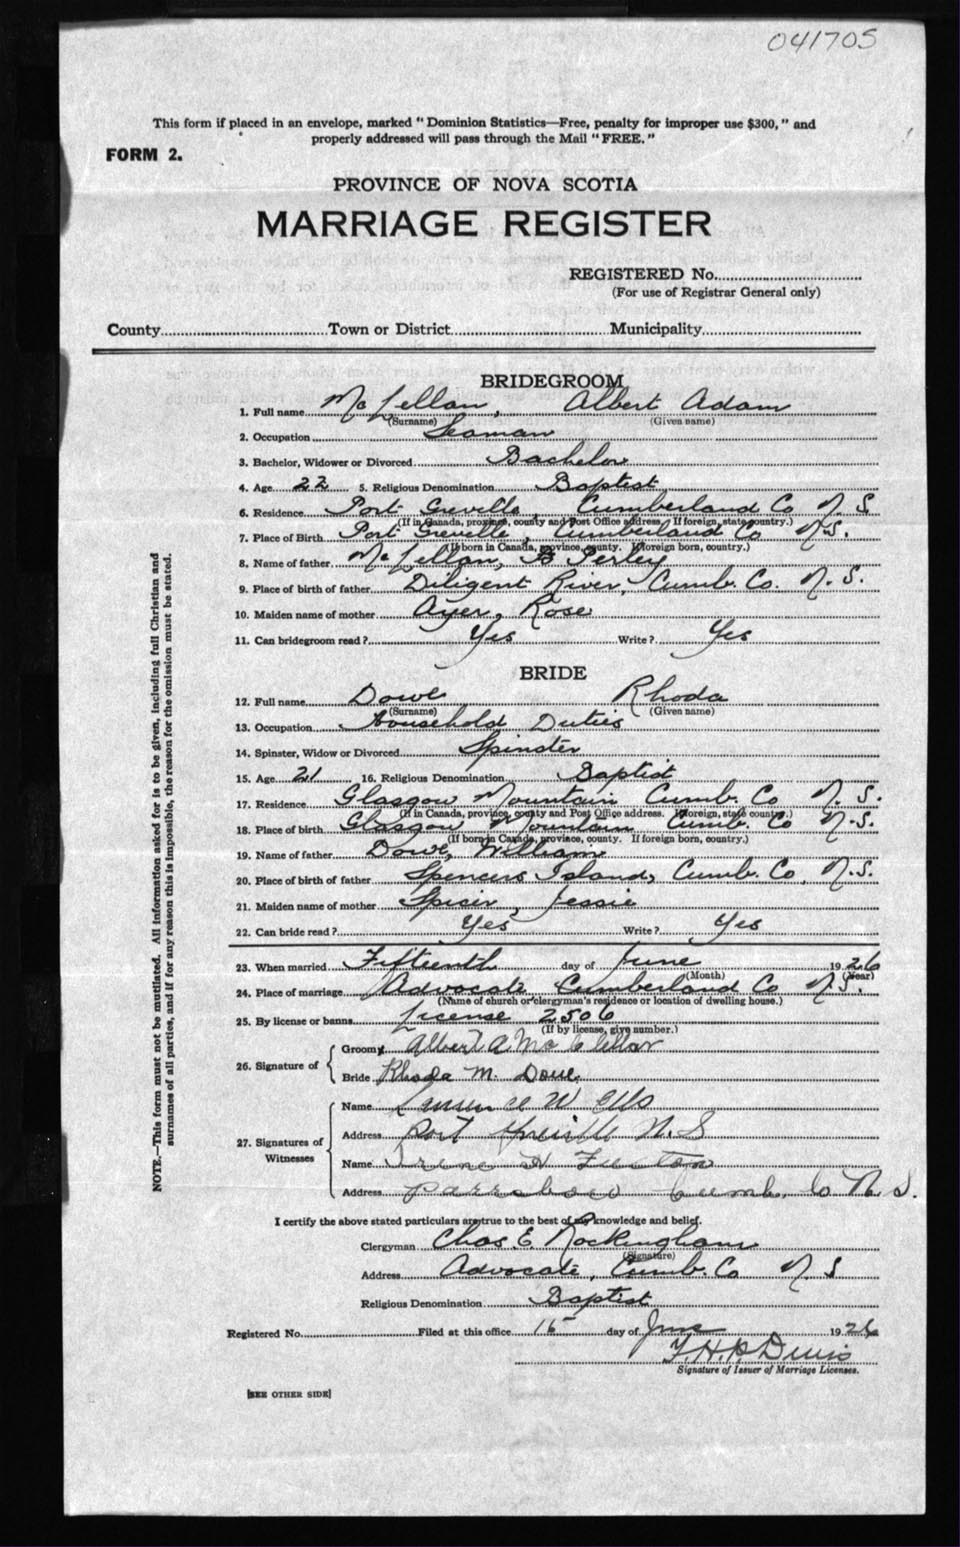 041705
This form if placed in an envelope, marked "Dominion Statistics—Free, penalty for improper use $300," and
properly addressed will pass through the Mail "FREE."
FORM 2.
PROVINCE OF NOVA SCOTIA
MARRIAGE REGISTER
REGISTERED No.
(For use of Registrar General only)
County Town or District Municipality
BRIDEGROOM
1. Full name McLellan, Albert Adam
(Surname) (Given name)
2. Occupation Seaman
3. Bachelor, Widower or Divorced Bachelor
4. Age 22 5. Religious Denomination Baptist
6. Residence Port Greville, Cumberland Co N.S.
(If in Canada, province, county and Post Office address. If foreign, state country.)
7. Place of Birth Port Greville, Cumberland Co N.S.
(If born in Canada, province, county. If foreign born, country.)
8. Name of father McLellan, B Perley
9. Place of birth of father Diligent River, Cumb. Co. N.S.
10. Maiden name of mother Ayer, Rose
11. Can bridegroom read? Yes Write? Yes
BRIDE
12. Full name Dowe Rhoda
(Surname) (Given name)
13. Occupation Household Duties
14. Spinster, Widow or Divorced Spinster
15. Age 21 16. Religious Denomination Baptist
17. Residence Glasgow Mountain Cumb. Co N.S.
(If in Canada, province, county and Post Office address. If foreign, state country.)
18. Place of birth Glasgow Mountain Cumb. Co N.S.
(If born in Canada, province, county. If foreign born, country.)
19. Name of father Dowe, William
20. Place of birth of father Spencers Island, Cumb. Co, N.S.
21. Maiden name of mother Spicer, Jessie
22. Can bride read? Yes Write? Yes
23. When married Fifteenth day of June 1926
(Month) (Year)
24. Place of marriage Advocate Cumberland Co N.S.
(Name of church or clergyman's residence or location of dwelling house.)
25. By license or banns License 2506
(If by license, give number.)
26. Signature of
Groom Albert A. McLellan
Bride Rhoda M. Dowe
27. Signatures of Witnesses
Name W Ells
Address Port Greville N.S
Name Irene H Fulton
Address Parrsboro Cumb. Co N.S.
I certify the above stated particulars are true to the best of my knowledge and belief.
Clergyman Chas E. Rockingham
(Signature)
Address Advocate, Cumb. Co N.S
Religious Denomination Baptist
Registered No. Filed at this office 15 day of June 1926
Signature of Issuer of Marriage Licenses.
[SEE OTHER SIDE]
NOTE.—This form must not be mutilated. All information asked for is to be given, including full Christian and
surnames of all parties, and if for any reason this is impossible, the reason for the omission must be stated.